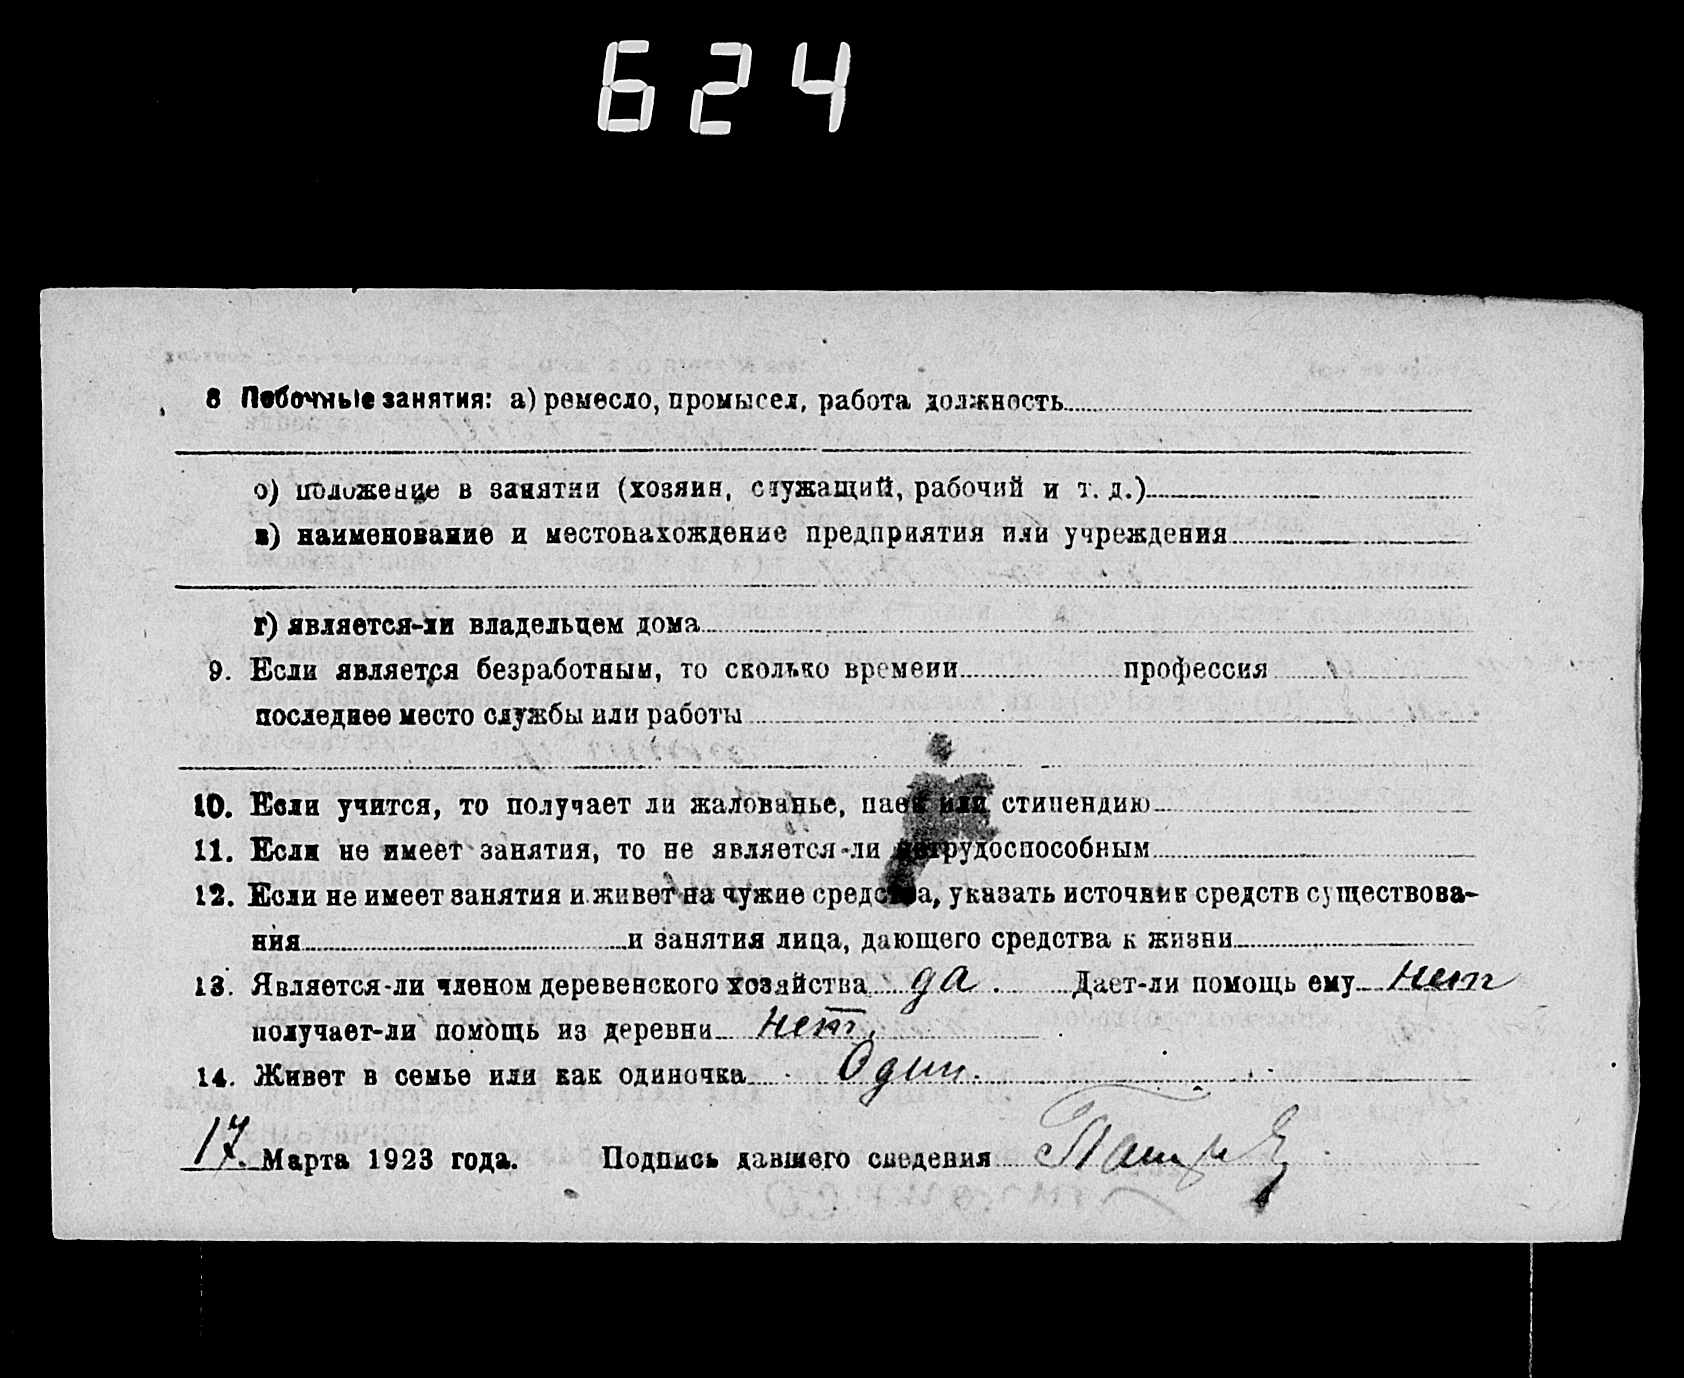 624
8 Побочные занятия: а) ремесло, промысел, работа должность
о) положение в занятии (хозяин, служащий, рабочий и т. д.)
в) наименование и местонахождение предприятия или учреждения
г) является-ли владельцем дома
9. Если является безработным, то сколько времени профессия
последнее место службы или работы
10. Если учится, то получает ли жалованье, паек или стипендию
11. Если не имеет занятия, то не является-ли нетрудоспособным
12. Если не имеет занятия и живет на чужие средства, указать источник средств существова-
ния и занятия лица, дающего средства к жизни
13. Является-ли членом деревенского хозяйства да. Дает-ли помощь ему нет
получает-ли помощь из деревни нет.
14. Живет в семье или как одиночка Один.
17. Марта 1923 года. Подпись давшего сведения